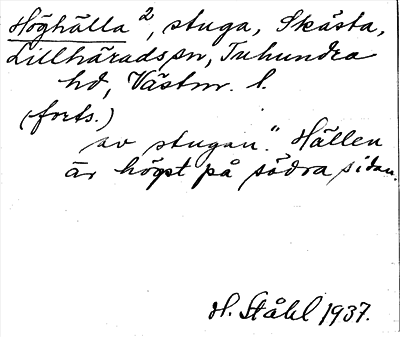 Höghälla², stuga, Skästa,
Lillhärads sn, Tuhundra
hd, Västm. l.
(forts.)
av stugan." Hällen
är högst på södra sidan.
H. Ståhl 1937.